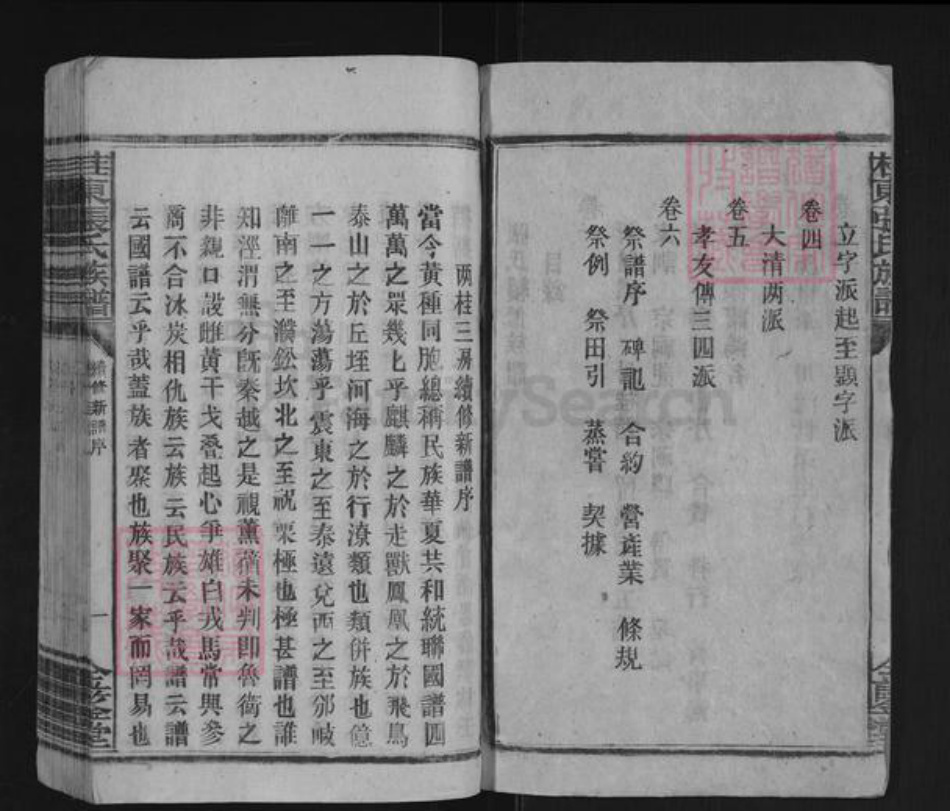 立字派起至顯字派
卷四
大清两派
卷五
孝友傳三四派
卷六
祭譜序 碑記 合約 營產業 條規
祭例 祭田引 蒸嘗 契據
桂東張氏族譜
两桂三房續修新譜序
當今黃種同胞總稱民族華夏共和統聯國譜四
萬萬之眾幾乎麒麟之於走獸鳳凰之於飛鳥
泰山之於丘垤河海之於行潦類也類併族也億
一一之方蕩蕩乎震東之至泰遠兌西之至邠岐
離南之至濮鈆坎北之至祝栗極也極甚譜也誰
知涇渭無分既秦越之是視薰蕕未判即魯衛之
非親口設雌黃干戈叠起心爭雄白戎馬常興參
商不合冰炭相仇族云族云民族云乎哉譜云譜
云國譜云乎哉蓋族者聚也族聚一家而罔易也
桂東張氏族譜
續修新譜序
一